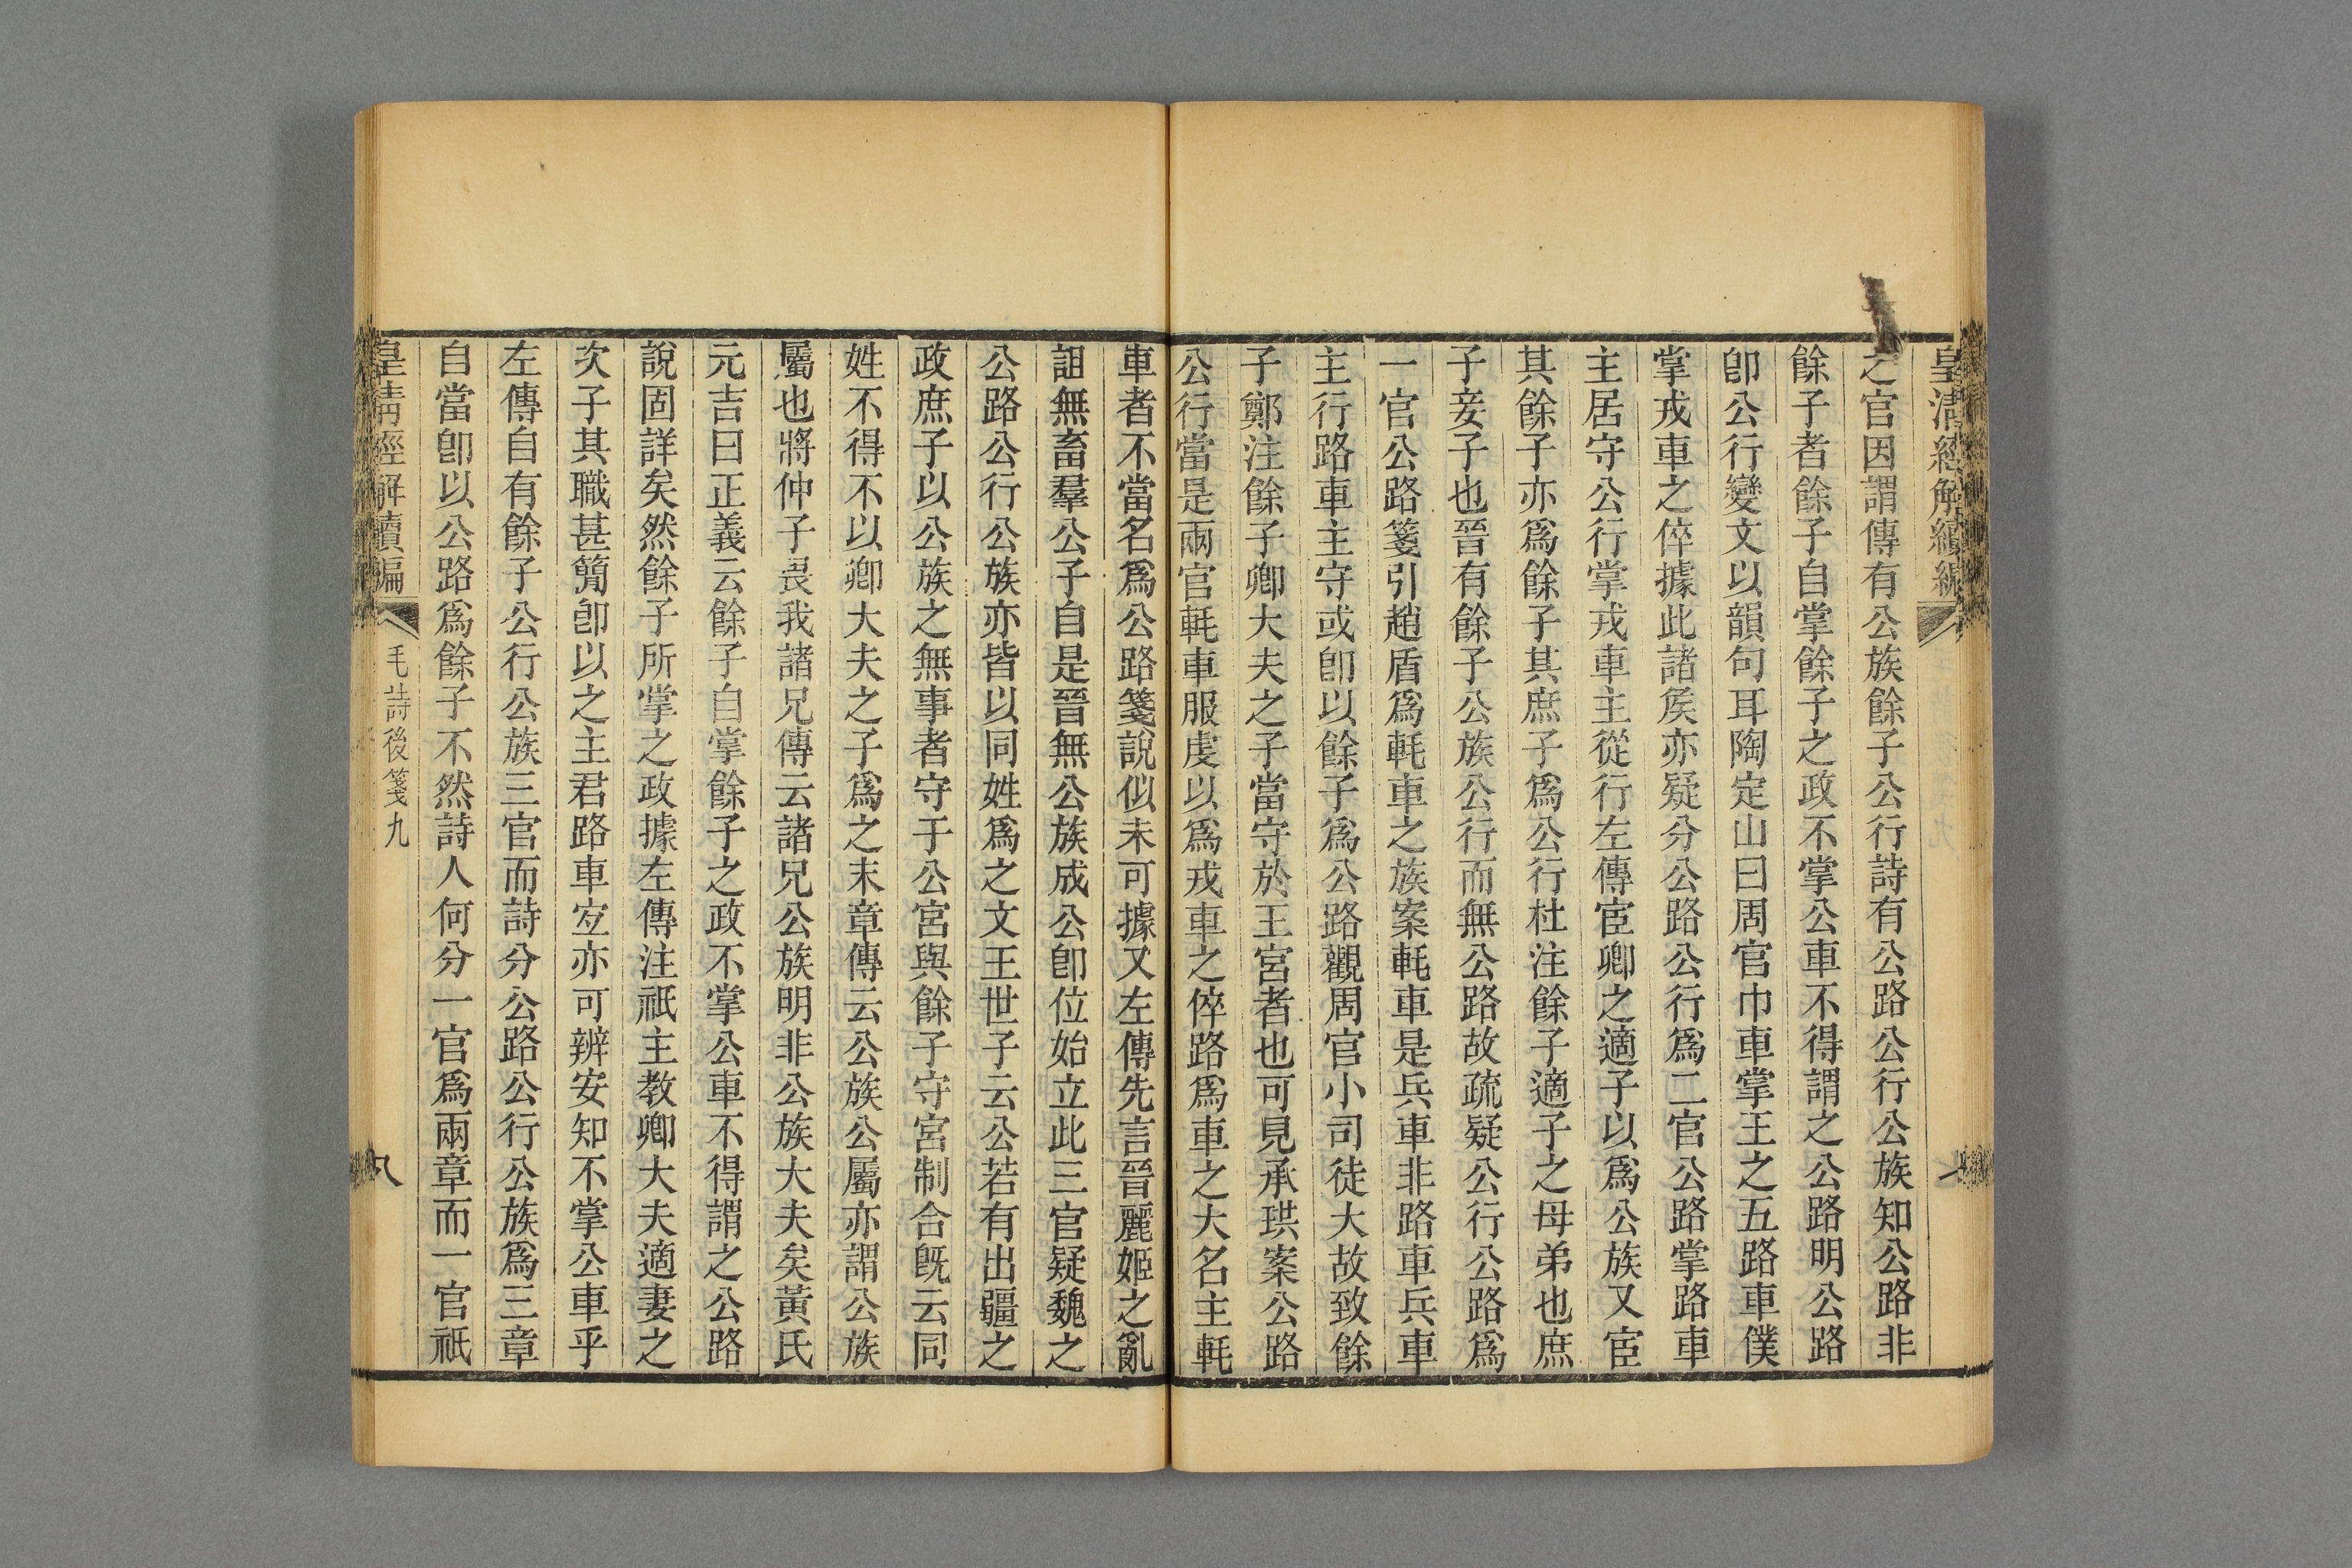 皇清經解續編
之官因謂傳有公族餘子公行詩有公路公行公族知公路非
餘子者餘子自掌餘子之政不掌公車不得謂之公路明公路
卽公行變文以韻句耳陶定山曰周官巾車掌王之五路車僕
掌戎車之倅據此諸矦亦疑分公路公行爲二官公路掌路車
主居守公行掌戎車主從行左傳宦卿之適子以爲公族又宦
其餘子亦爲餘子其庶子爲公行杜注餘子適子之母弟也庶
子妾子也晉有餘子公族公行而無公路故疏疑公行公路爲
一官公路箋引趙盾爲軞車之族案軞車是兵車非路車兵車
主行路車主守或卽以餘子爲公路觀周官小司徒大故致餘
子鄭注餘子卿大夫之子當守於王宮者也可見承珙案公路
公行當是兩官軞車服虔以爲戎車之倅路爲車之大名主軞
車者不當名爲公路箋說似未可據又左傳先言晉麗姬之亂
詛無畜羣公子自是晉無公族成公卽位始立此三官疑魏之
公路公行公族亦皆以同姓爲之文王世子云公若有出疆之
政庶子以公族之無事者守于公宮與餘子守宮制合旣云同
姓不得不以卿大夫之子爲之末章傳云公族公屬亦謂公族
屬也將仲子畏我諸兄傳云諸兄公族明非公族大夫矣黃氏
元吉曰正義云餘子自掌餘子之政不掌公車不得謂之公路
說固詳矣然餘子所掌之政據左傳注祇主教卿大夫適妻之
次子其職甚簡卽以之主君路車宐亦可辨安知不掌公車乎
左傳自有餘子公行公族三官而詩分公路公行公族爲三章
自當卽以公路爲餘子不然詩人何分一官爲兩章而一官祇
皇清經解續編 毛詩後箋九 八